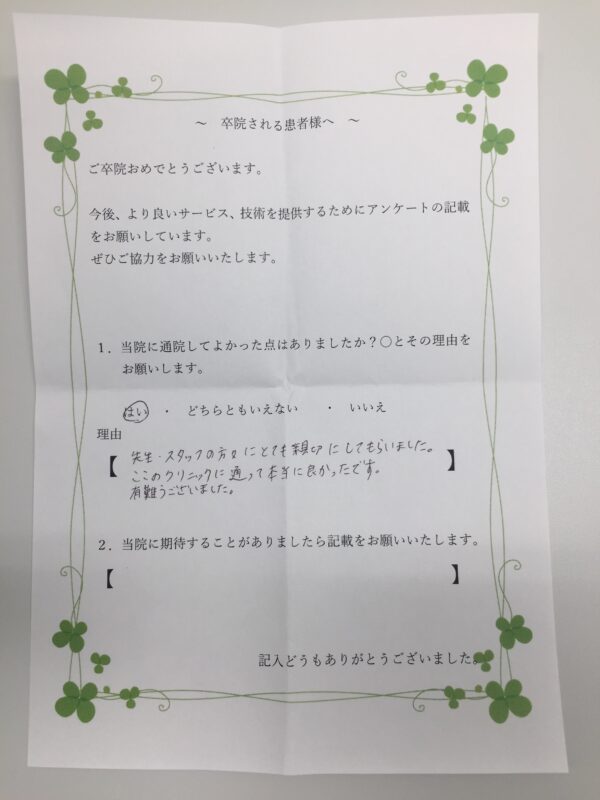 ～　卒院される患者様へ　～
ご卒院おめでとうございます。
今後、より良いサービス、技術を提供するためにアンケートの記載
をお願いしています。
ぜひご協力をお願いいたします。
１．当院に通院してよかった点はありましたか？〇とその理由を
お願いします。
はい　・　どちらともいえない　・　いいえ
理由
【 先生・スタッフの方々にとても親切にしてもらいました。 】
ここのクリニックに通って本当に良かったです。
有難うございました。
２．当院に期待することがありましたら記載をお願いいたします。
【　】
記入どうもありがとうございました。